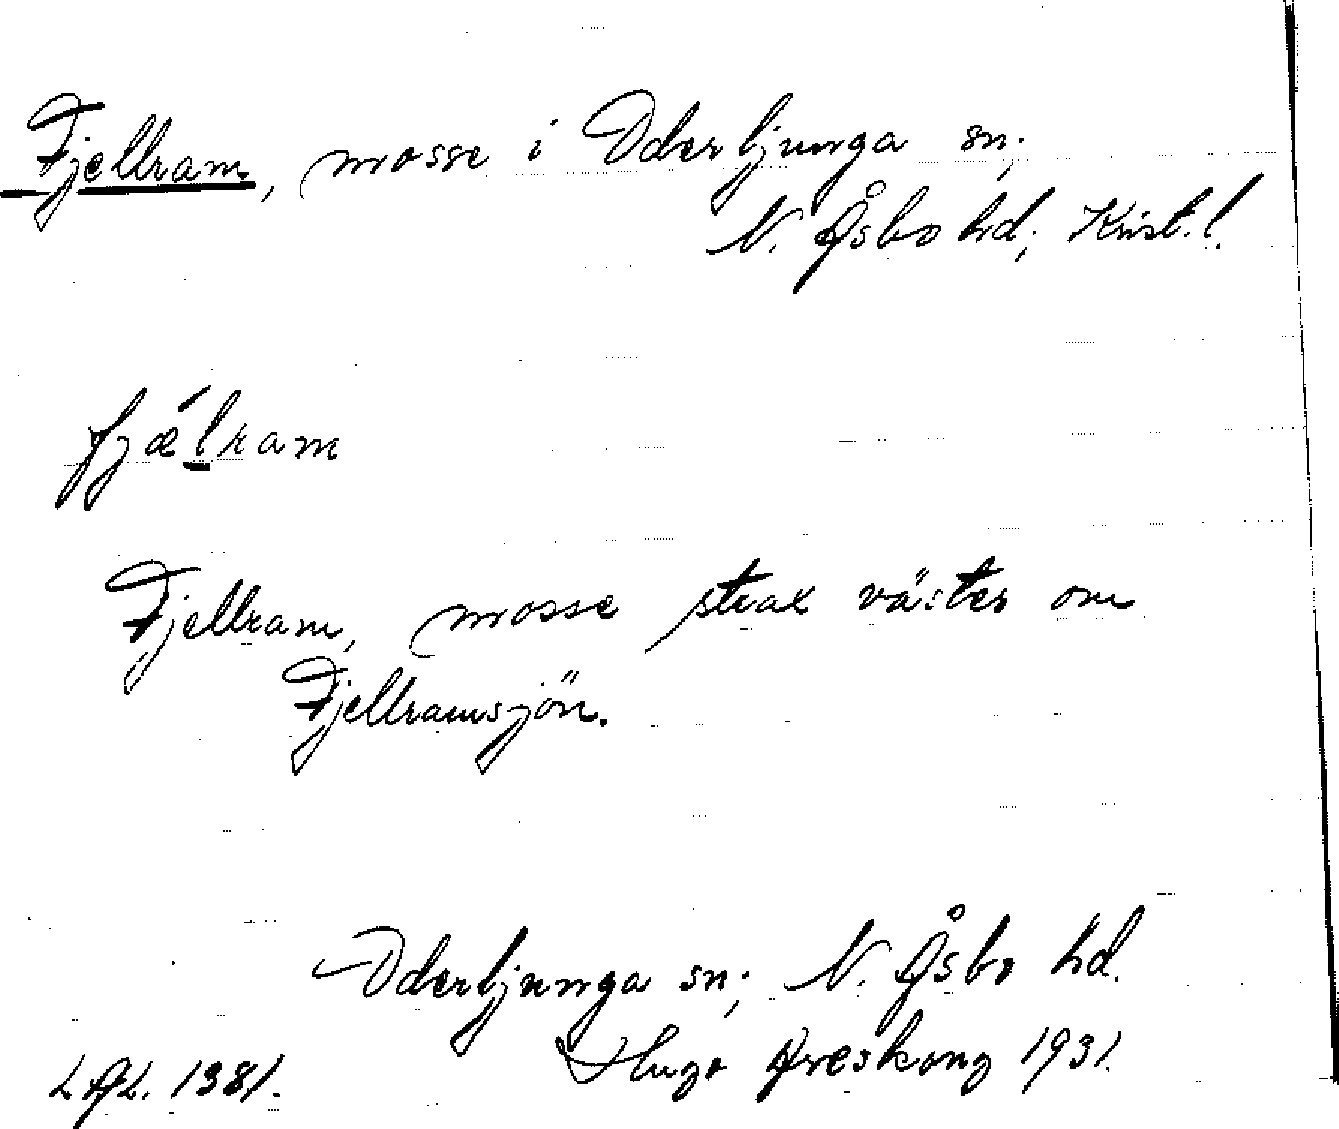 Fjellram, mosse i Oderljunga sn;
N. Åsbo hd; Krist. l.
fjǽlram
Fjellram, mosse strax väster om
Fjellramsjön.
Oderljunga sn; N. Åsbo hd.
Hugo Areskoug 1931.
LAL. 1381.